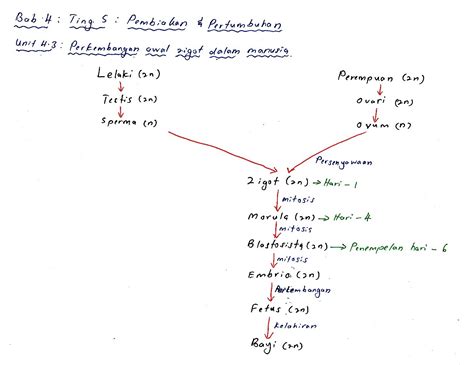 Bab 4 : Ting 5 : Pembiakan & Pertumbuhan
Unit 4.3 : Perkembangan awal zigot dalam manusia.
Lelaki (2n)
Perempuan (2n)
Testis (2n)
Ovari (2n)
Sperma (n)
Ovum (n)
Persenyawaan
Zigot (2n) → Hari - 1
mitosis
Morula (2n) → Hari - 4
mitosis
Blastosista (2n) → Penempelan hari - 6
mitosis
Embrio (2n)
Perkembangan
Fetus (2n)
Kelahiran
Bayi (2n)